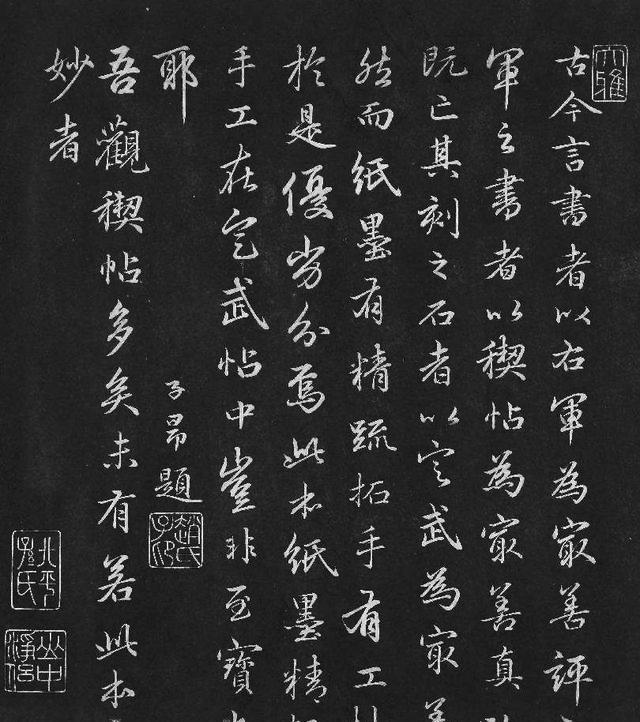 大雅
古今言書者以右軍為最善評
軍之書者以稧帖為最善真
既亡其刻之石者以定武為最善
然而紙墨有精疏拓手有工
於是優劣分焉此本紙墨精
手工在定武帖中豈非至寶
耶
子昂題
趙氏子昂
吾觀稧帖多矣未有若此本
妙者